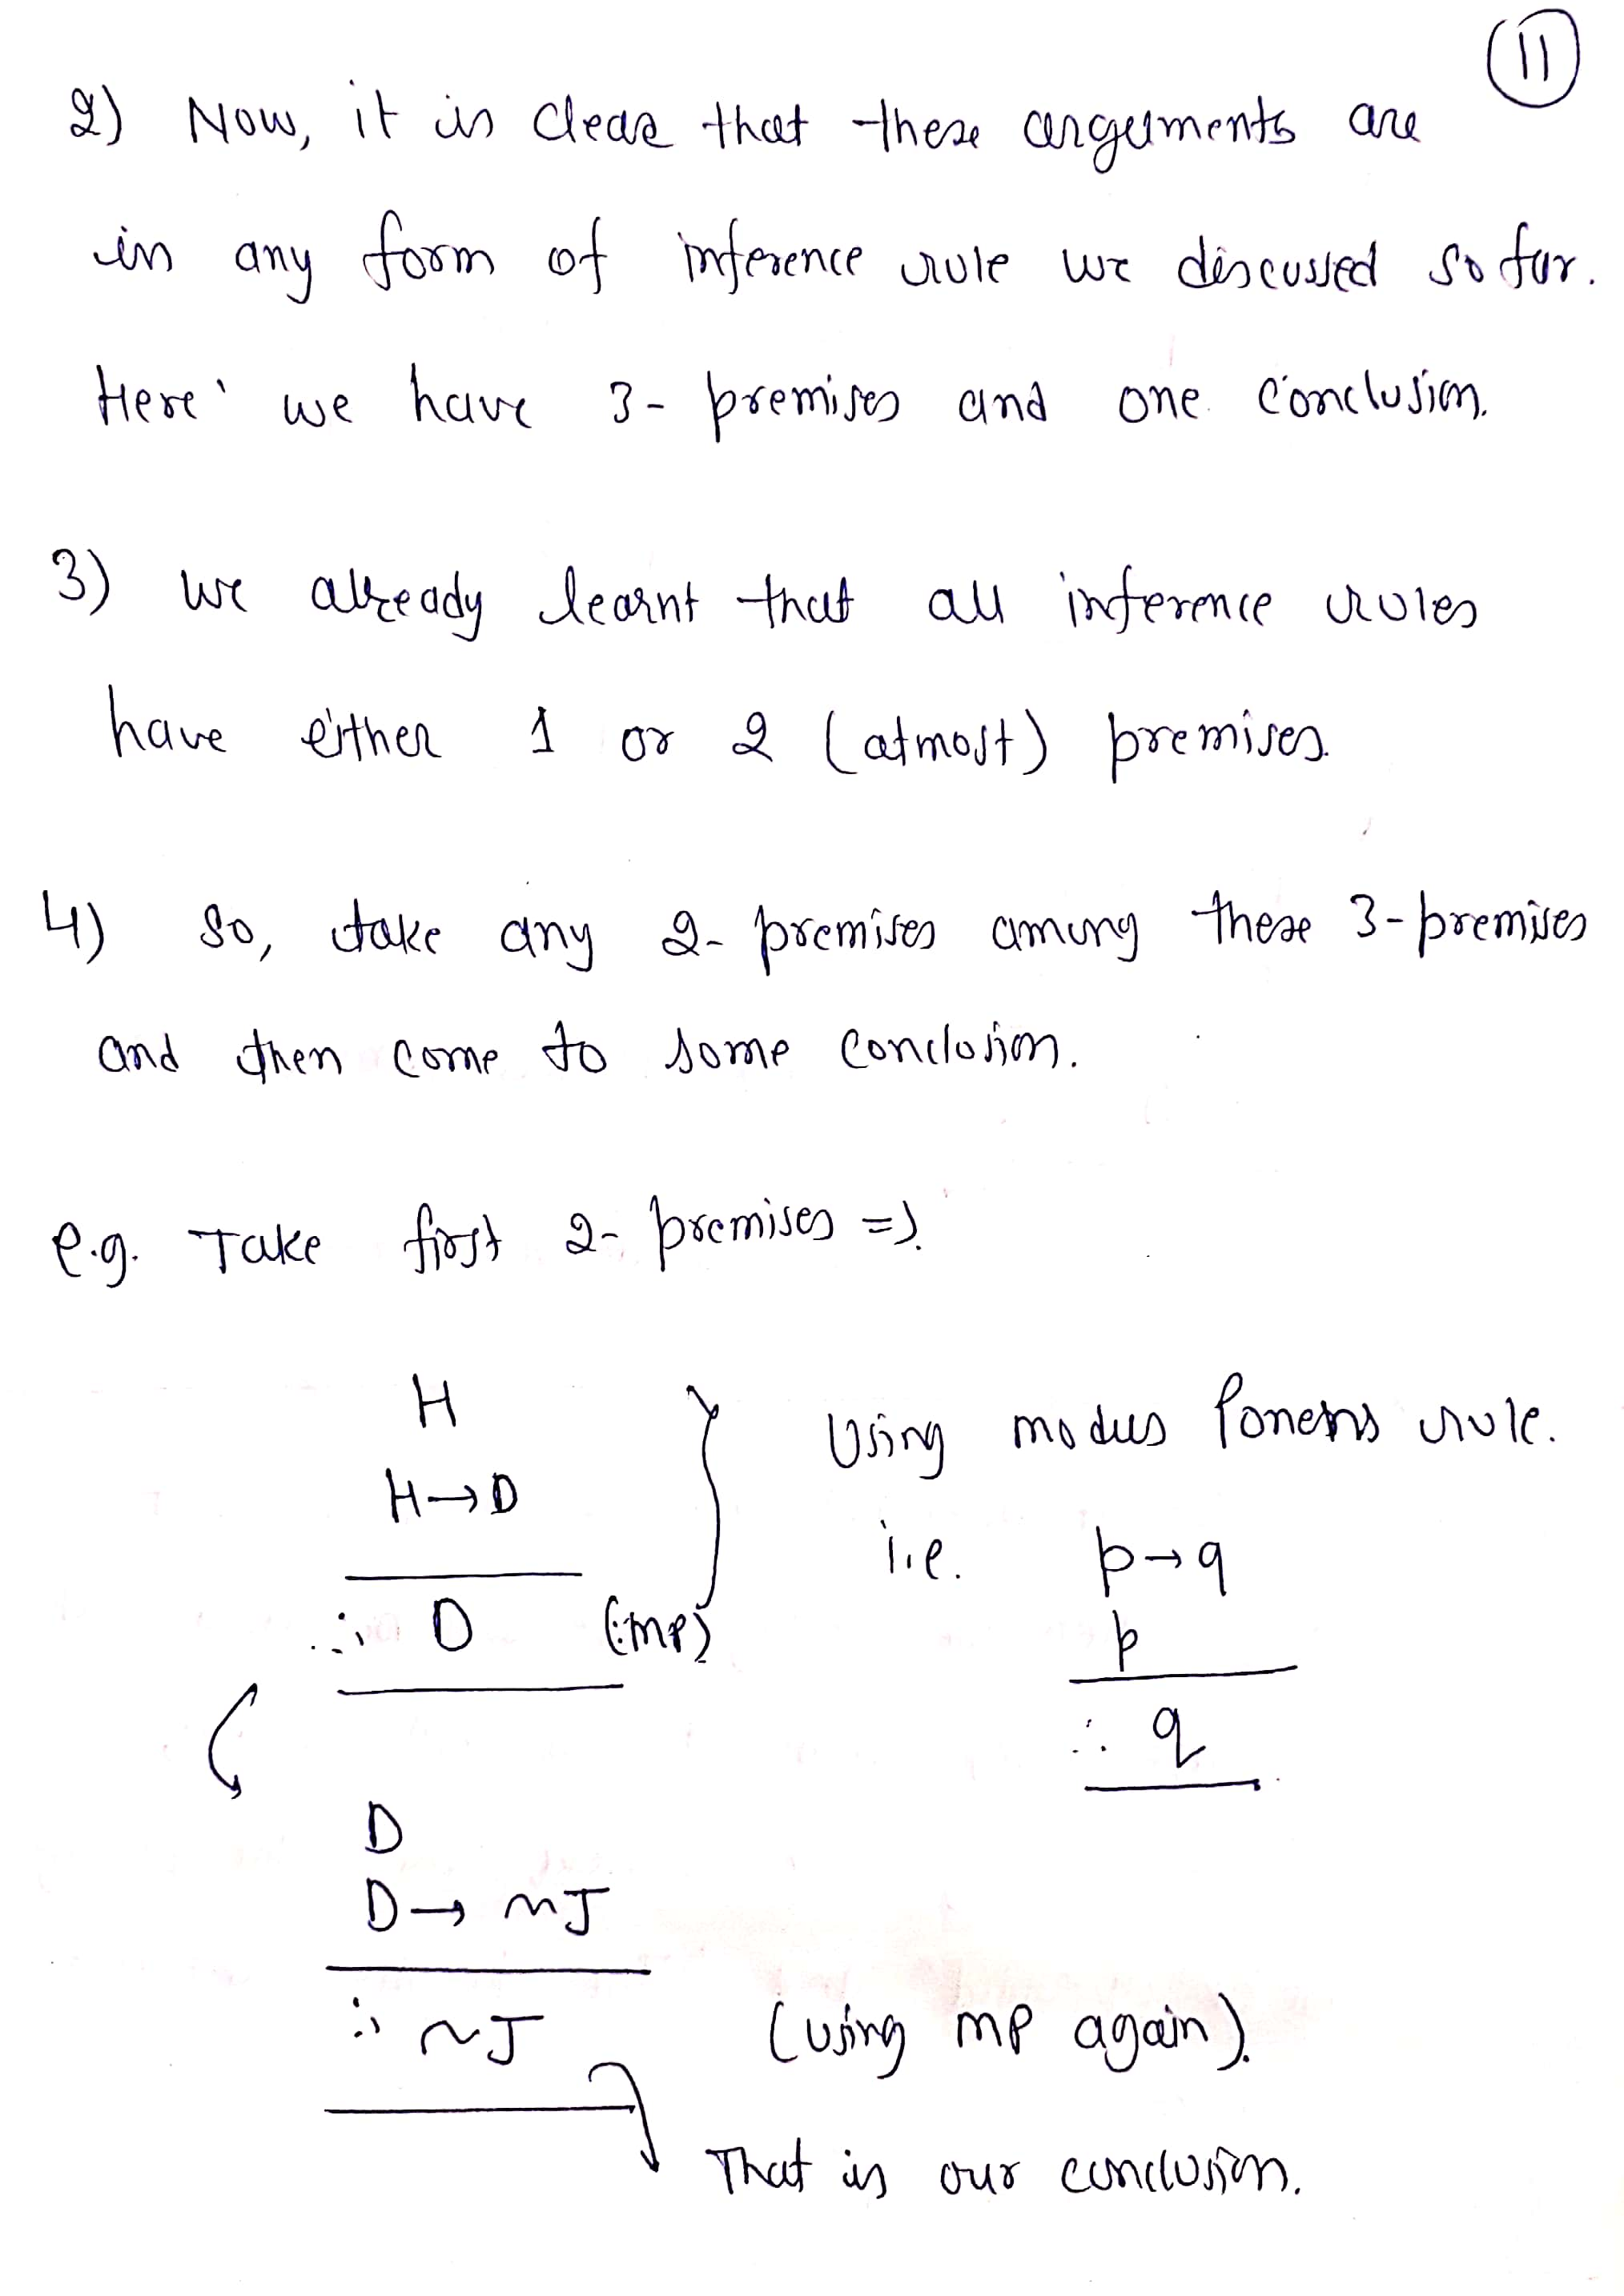 11
2) Now, it is clear that these arguments are
in any form of inference rule we discussed so far.
Here we have 3- premises and one conclusion.
3) we already learnt that all inference rules
have either 1 or 2 (atmost) premises.
4) So, take any 2- premises among these 3-premises
and then come to some conclusion.
e.g. Take first 2- premises =>.
H
H→D
∴ D (∵MP)
Using modus Ponens rule.
i.e. p→q
p
∴ q
D
D→ ~J
∴ ~J (using MP again).
That is our conclusion.